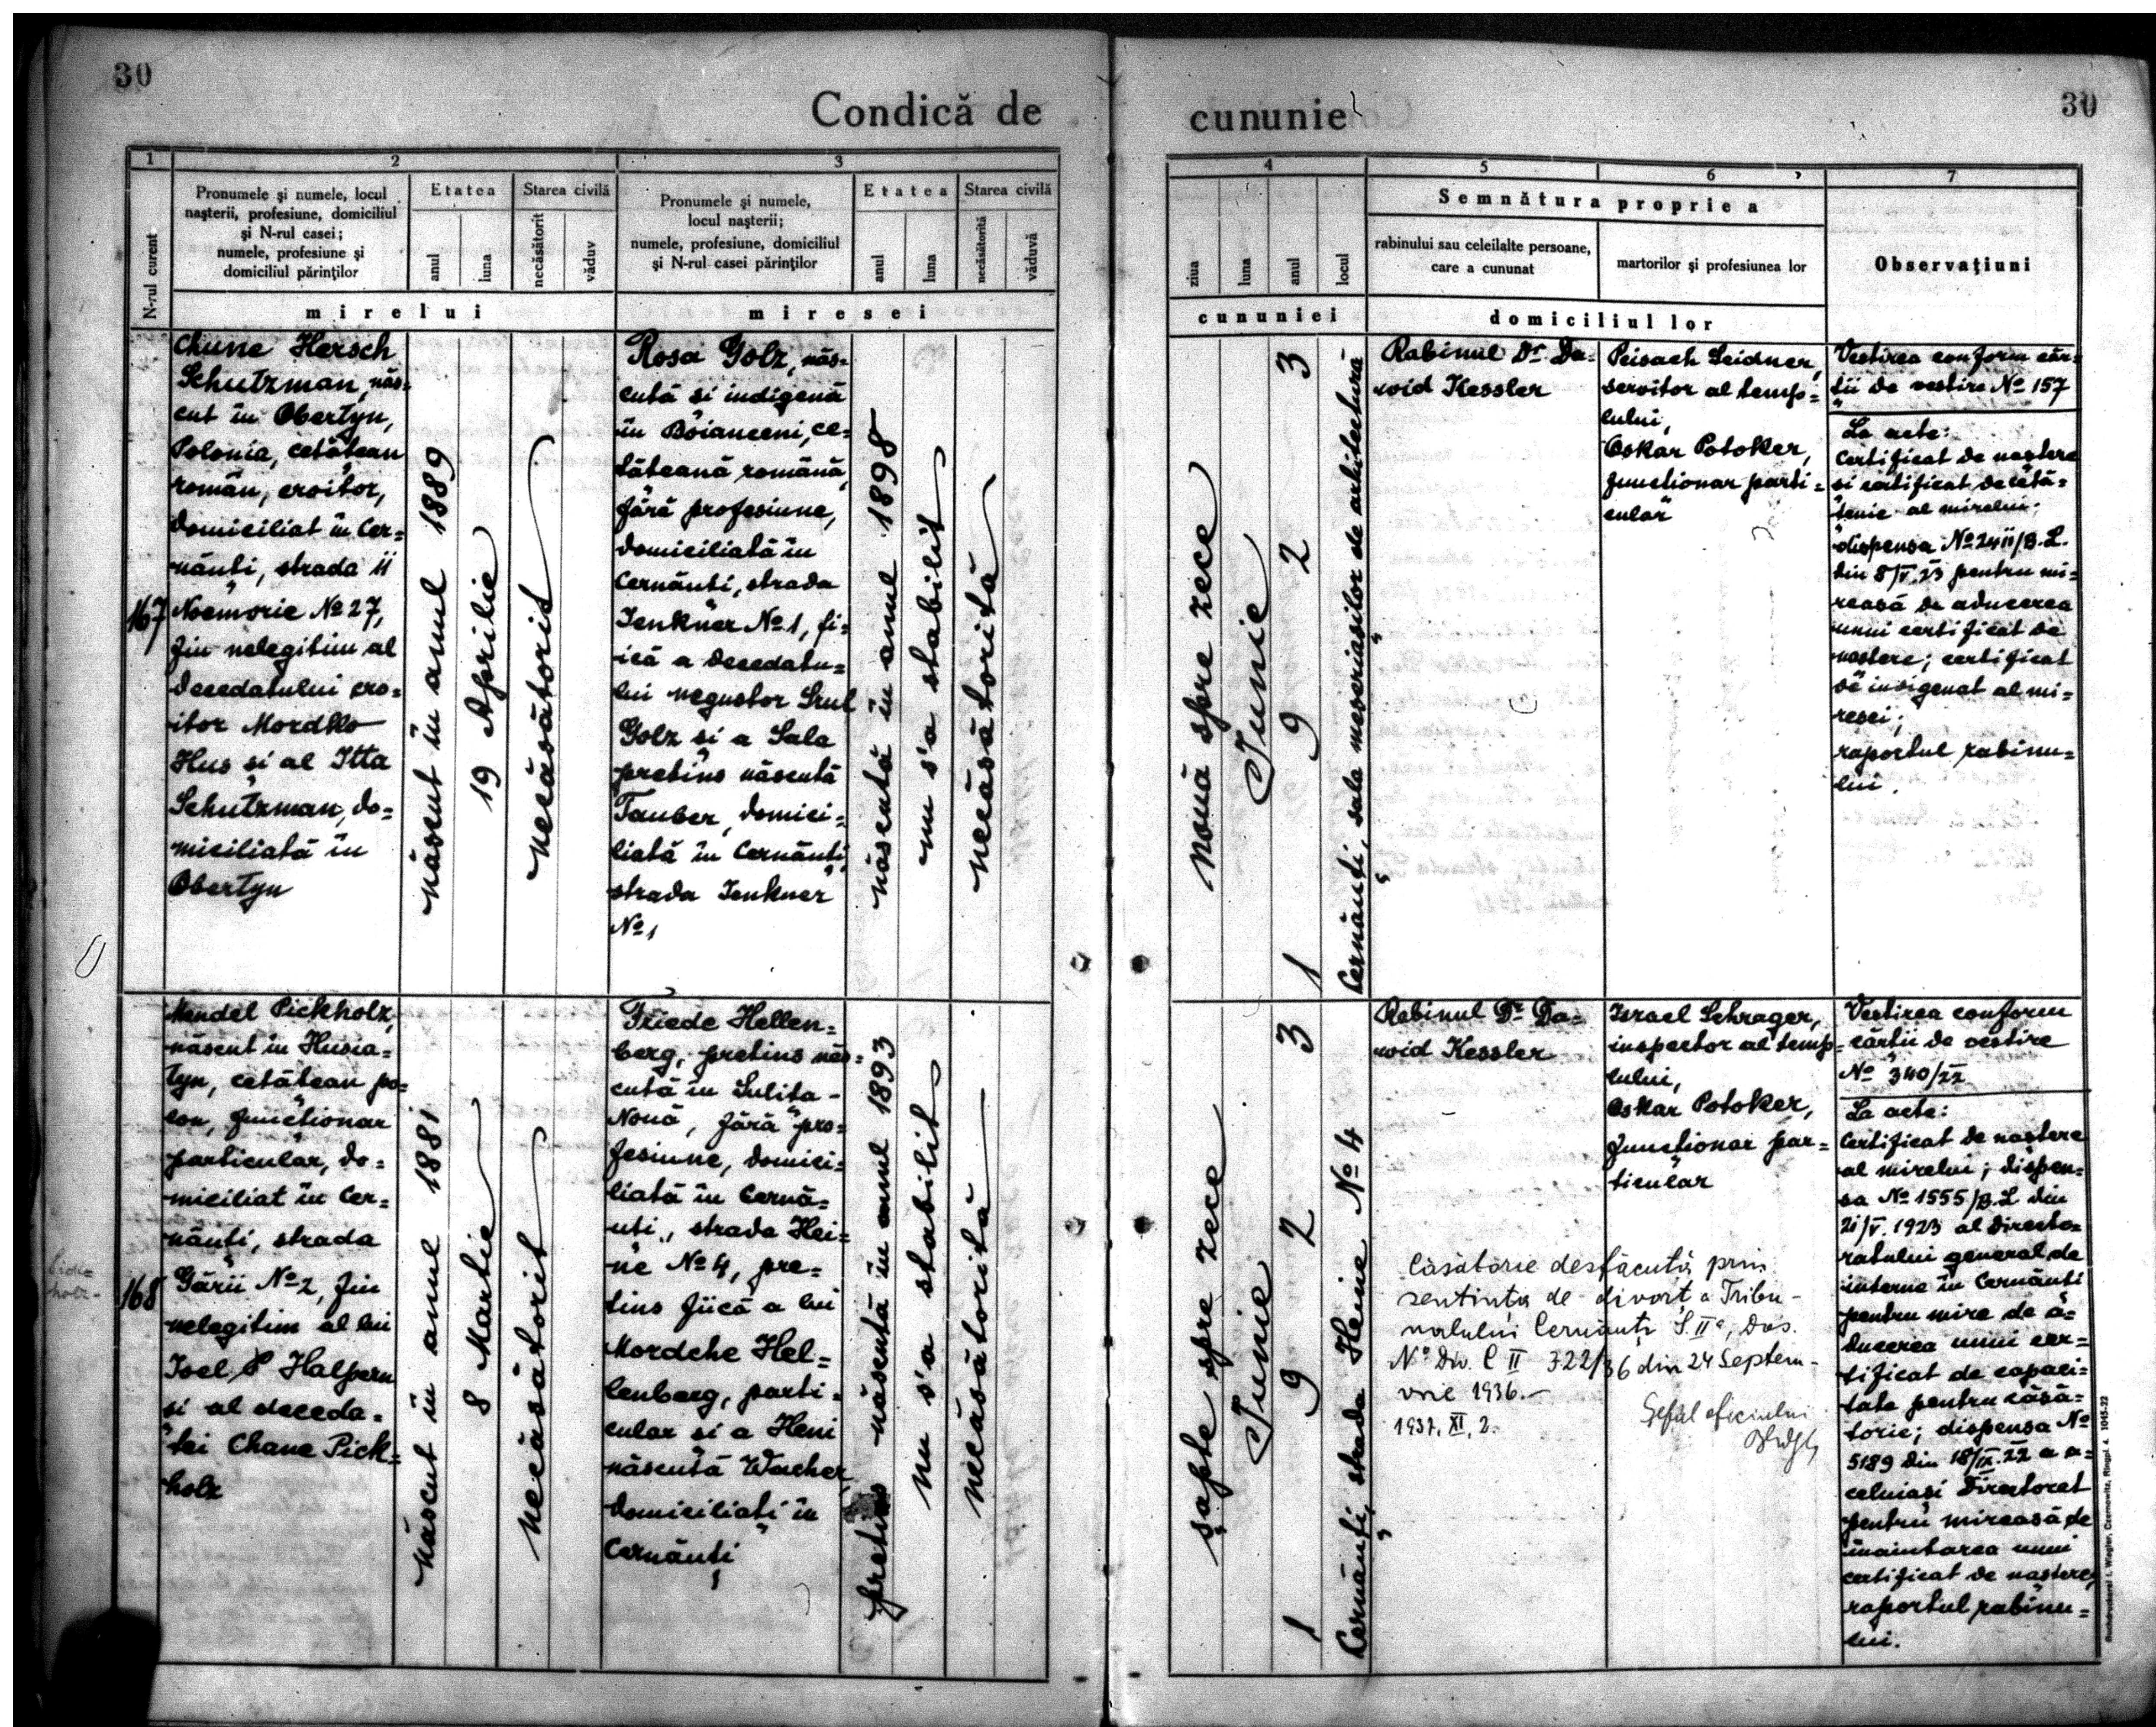 30
30
Condică de cununie
1
2
3
4
5
6
7
N-rul curent
Pronumele și numele, locul
nașterii, profesiune, domiciliul
și N-rul casei;
numele, profesiune și
domiciliul părinților
Etatea
Starea civilă
anul
luna
necăsătorit
văduv
mirelui
Pronumele și numele,
locul nașterii;
numele, profesiune, domiciliul
și N-rul casei părinților
Etatea
Starea civilă
anul
luna
necăsătorită
văduvă
miresei
ziua
luna
anul
locul
cununiei
Semnătura proprie a
rabinului sau celeilalte persoane,
care a cununat
martorilor și profesiunea lor
domiciliul lor
Observațiuni
167
Chune Hersch
Schutzman, năs=
cut în Obertyn,
Polonia, cetățean
român, croitor,
domiciliat în Cer=
năuți, strada 11
Noemvrie No 27,
fiu nelegitim al
decedatului cro=
itor Mordko
Hus și al Itta
Schutzman, do=
miciliată în
Obertyn
născut în anul 1889
19 Aprilie
necăsătorit
Rosa Golz, năs=
cută si indigenă
în Boianceni, ce=
tățeană română,
fără profesiune,
domiciliată în
Cernăuți, strada
Jenkner No 1, fi=
ică a decedatu=
lui negustor Srul
Golz și a Sala
pretins născută
Tauber, domici=
liată în Cernăuți,
strada Jenkner
No 1
născută în anul 1898
nu s'a stabilit
necăsătorită
nouă spre zece
Iunie
1923
Cernăuți, sala meseriașilor de arhitectură
Rabinul Dr Da=
vid Kessler
Peisach Leidner,
servitor al temp=
lului,
Oskar Potoker,
funcționar parti=
cular
Vestirea conform căr=
ții de vestire No 157
La acte:
Certificat de naștere
și certificat de cetă=
țenie al mirelui;
dispensa No 2411/B.L.
din 8/V.23 pentru mi=
reasă de aducerea
unui certificat de
naștere; certificat
de indigenat al mi=
resei;
raportul rabinu=
lui.
168
Mendel Pickholz,
născut în Husia=
tyn, cetățean po=
lon, funcționar
particular, do=
miciliat în Cer=
năuți, strada
Gării No 2, fiu
nelegitim al lui
Joel Halpern
și al deceda=
tei Chane Pick=
holz
născut în anul 1881
8 Martie
necăsătorit
Friede Hellen=
berg, pretins năs=
cută în Sulița-
Nouă, fără pro=
fesiune, domici=
liată în Cernă=
uți, strada Hei=
ne No 4, pre=
tins fiică a lui
Mordche Hel=
lenberg, parti=
cular și a Heni
născută Wacher,
domiciliați în
Cernăuți
pretins născută în anul 1893
nu s'a stabilit
necăsătorită
șapte spre zece
Iunie
1923
Cernăuți, strada Heine No 4
Rabinul Dr Da=
vid Kessler
Israel Schrager,
inspector al temp=
lului,
Oskar Potoker,
funcționar par=
ticular
Căsătorie desfăcută prin
sentința de divorț a Tribu-
nalului Cernăuți S. IIa, Dos.
No Div. C II 322/36 din 24 Septem-
vrie 1936.-
1937, XI, 2.
Șeful oficiului
Vestirea conform
cărții de vestire
No 340/22
La acte:
Certificat de naștere
al mirelui; dispen=
sa No 1555/B.L. din
21/V.1923 al Directo=
ratului general de
interne în Cernăuți
pentru mire de a=
ducerea unui cer=
tificat de capaci=
tate pentru căsă=
torie; dispensa No
5189 din 18/IX.22 a a=
celuiași Directorat
pentru mireasă de
înaintarea unui
certificat de naștere;
raportul rabinu=
lui.
Buchdruckerei I. Wiegler, Czernowitz, Ringpl. 4. 1045-22